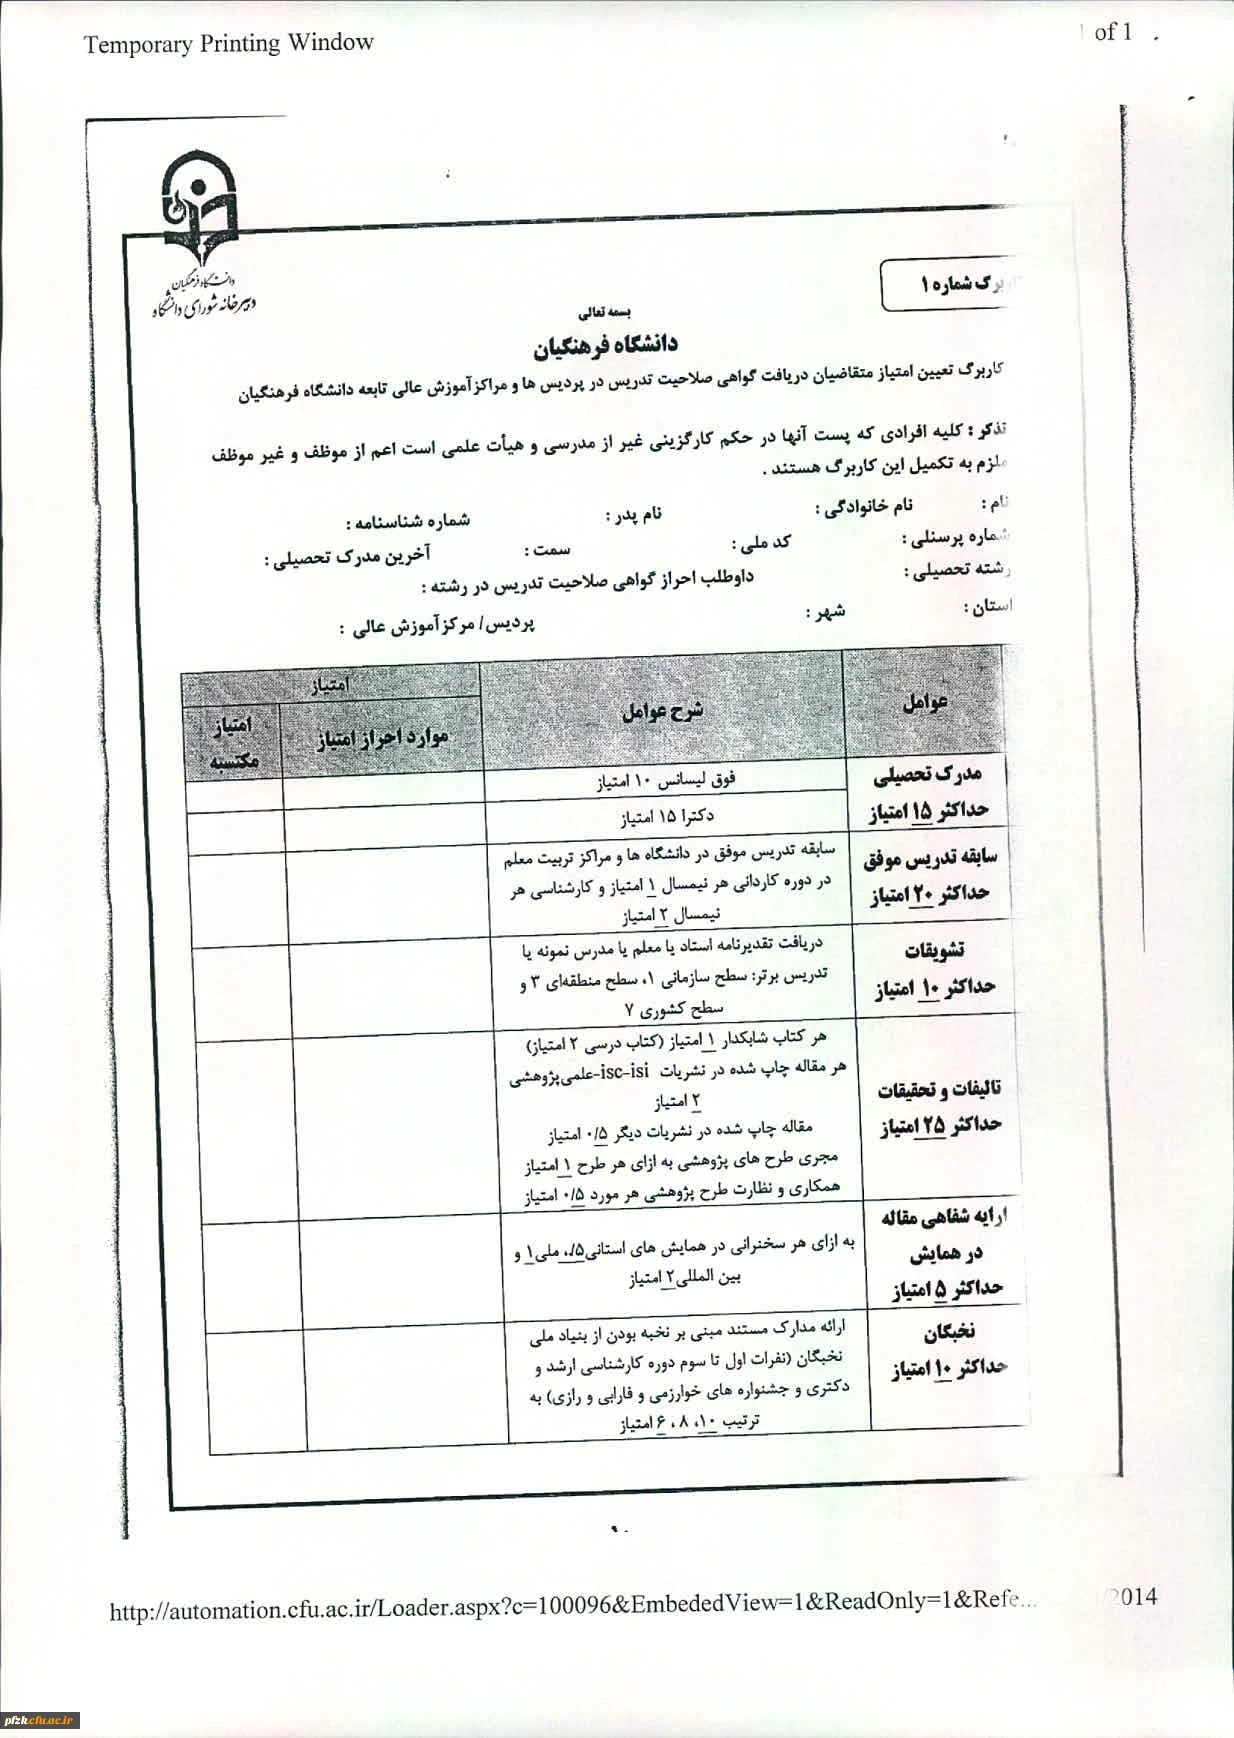 Temporary Printing Window
of 1
دانشگاه فرهنگیان
دبیرخانه شورای دانشگاه
برگ شماره ۱
بسمه تعالی
دانشگاه فرهنگیان
کاربرگ تعیین امتیاز متقاضیان دریافت گواهی صلاحیت تدریس در پردیس ها و مراکز آموزش عالی تابعه دانشگاه فرهنگیان
تذکر : کلیه افرادی که پست آنها در حکم کارگزینی غیر از مدرسی و هیأت علمی است اعم از موظف و غیر موظف
ملزم به تکمیل این کاربرگ هستند .
نام : نام خانوادگی : نام پدر : شماره شناسنامه :
شماره پرسنلی : کد ملی : سمت : آخرین مدرک تحصیلی :
رشته تحصیلی : داوطلب احراز گواهی صلاحیت تدریس در رشته :
استان : شهر : پردیس/ مرکز آموزش عالی :
عوامل شرح عوامل امتیاز
موارد احراز امتیاز امتیاز مکتسبه
مدرک تحصیلی
حداکثر ۱۵ امتیاز
فوق لیسانس ۱۰ امتیاز
دکترا ۱۵ امتیاز
سابقه تدریس موفق
حداکثر ۲۰ امتیاز
سابقه تدریس موفق در دانشگاه ها و مراکز تربیت معلم
در دوره کاردانی هر نیمسال ۱ امتیاز و کارشناسی هر
نیمسال ۲ امتیاز
تشویقات
حداکثر ۱۰ امتیاز
دریافت تقدیرنامه استاد یا معلم یا مدرس نمونه یا
تدریس برتر: سطح سازمانی ۱، سطح منطقه‌ای ۳ و
سطح کشوری ۷
تالیفات و تحقیقات
حداکثر ۲۵ امتیاز
هر کتاب شابکدار ۱ امتیاز (کتاب درسی ۲ امتیاز)
هر مقاله چاپ شده در نشریات isc-isi-علمی‌پژوهشی
۲ امتیاز
مقاله چاپ شده در نشریات دیگر ۰/۵ امتیاز
مجری طرح های پژوهشی به ازای هر طرح ۱ امتیاز
همکاری و نظارت طرح پژوهشی هر مورد ۰/۵ امتیاز
ارایه شفاهی مقاله
در همایش
حداکثر ۵ امتیاز
به ازای هر سخنرانی در همایش های استانی ۰/۵، ملی ۱ و
بین المللی ۲ امتیاز
نخبگان
حداکثر ۱۰ امتیاز
ارائه مدارک مستند مبنی بر نخبه بودن از بنیاد ملی
نخبگان (نفرات اول تا سوم دوره کارشناسی ارشد و
دکتری و جشنواره های خوارزمی و فارابی و رازی) به
ترتیب ۱۰، ۸ ، ۶ امتیاز
http://automation.cfu.ac.ir/Loader.aspx?c=100096&EmbededView=1&ReadOnly=1&Refe...
/2014
pfzk.cfu.ac.ir